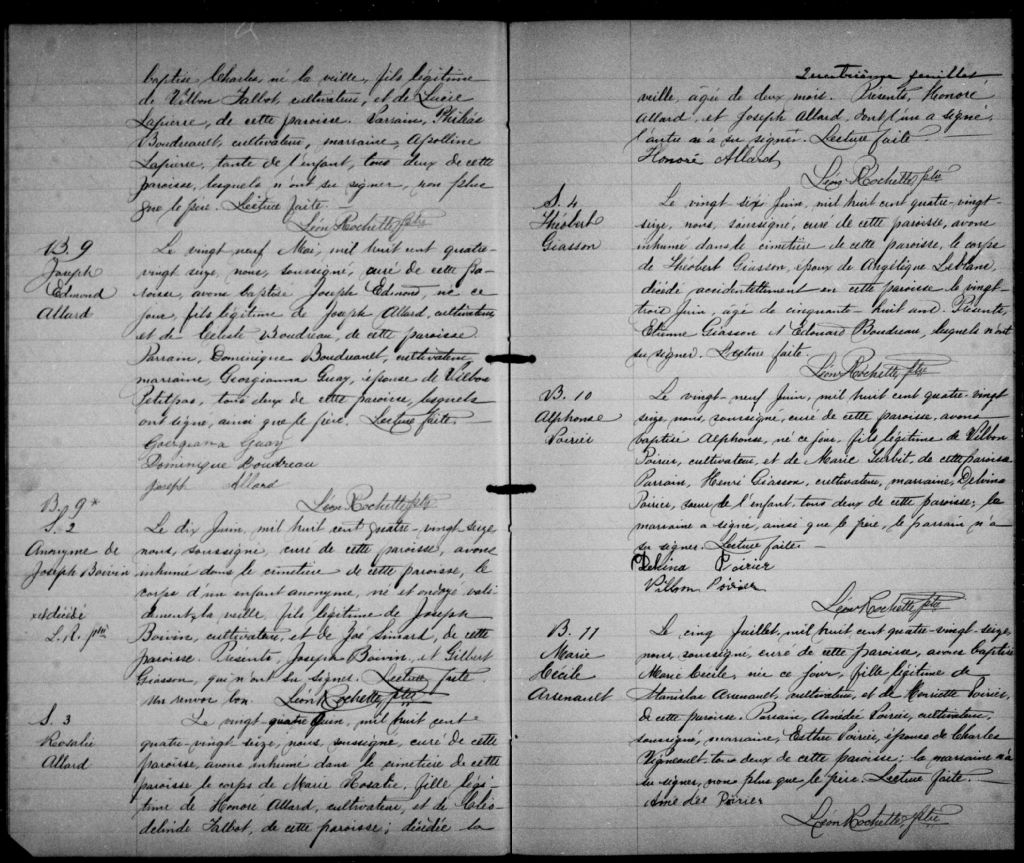 baptisé Charles, né la veille, fils légitime
de Vilbon Talbot, cultivateur, et de Lucie
Lapierre, de cette paroisse. Parrain, Philéas
Boudreault, cultivateur, marraine, Apolline
Lapierre, tante de l'enfant, tous deux de cette
paroisse, lesquels n'ont su signer, non plus
que le père. Lecture faite. —
Léon Rochette, ptre
B. 9
Joseph
Edmond
Allard
Le vingt neuf Mai, mil huit cent quatre-
vingt seize, nous, soussigné, curé de cette pa-
roisse, avons baptisé Joseph Edmond, né ce
jour, fils légitime de Joseph Allard, cultivateur
et de Céleste Boudreau, de cette paroisse
Parrain, Dominique Boudreault, cultivateur,
marraine, Georgianna Guay, épouse de Vilbon
Petitpas, tous deux de cette paroisse, lesquels
ont signé, ainsi que le père. Lecture faite. —
Goergiana Guay
Dominique Boudreau
Joseph Allard
Léon Rochette, ptre
B. 9*
S. 2
Anonyme de
Joseph Boivin
x et décédé
L. R. ptre
Le dix Juin, mil huit cent quatre-vingt seize
nous, soussigné, curé de cette paroisse, avons
inhumé dans le cimetière de cette paroisse, le
corps d'un enfant anonyme, né et ondoyé vali-
dement x la veille, fils légitime de Joseph
Boivin, cultivateur, et de Joé Simard, de cette
paroisse. Présents, Joseph Boivin, et Gilbert
Giasson, qui n'ont su signer. Lecture faite
Un renvoi bon Léon Rochette, ptre
S. 3
Rosalie
Allard
Le vingt quatre Juin, mil huit cent
quatre-vingt seize, nous, soussigné, curé de cette
paroisse, avons inhumé dans le cimetière de cette
paroisse le corps de Marie Rosalie, fille légi-
time de Honoré Allard, cultivateur, et de Cléo-
delinde Talbot, de cette paroisse; décédée la
Quatrième feuillet
veille, âgée de deux mois. Présents, Honoré
Allard, et Joseph Allard, dont l'un a signé,
l'autre n'a su signer. Lecture faite.
Honoré Allard
Léon Rochette, ptre
S. 4
Théobert
Giasson
Le vingt six Juin, mil huit cent quatre-vingt-
seize, nous, soussigné, curé de cette paroisse, avons
inhumé dans le cimetière de cette paroisse, le corps
de Théobert Giasson, époux de Angélique Leblanc,
décédé accidentellement en cette paroisse le vingt-
trois Juin, âgé de cinquante-huit ans. Présents,
Etienne Giasson et Edouard Boudreau, lesquels n'ont
su signer. Lecture faite.
Léon Rochette, ptre
B. 10
Alphonse
Poirier
Le vingt-neuf Juin, mil huit cent quatre-vingt
seize, nous, soussigné, curé de cette paroisse, avons
baptisé Alphonse, né ce jour, fils légitime de Vilbon
Poirier, cultivateur, et de Marie Turbit, de cette paroisse
Parrain, Henri Giasson, cultivateur, marraine, Delvina
Poirier, sœur de l'enfant, tous deux de cette paroisse; la
marraine a signé, ainsi que le père, le parrain n'a
su signer. Lecture faite —
Delvina Poirier
Vilbon Poirier
Léon Rochette, ptre
B. 11
Marie
Cécile
Arsenault
Le cinq Juillet, mil huit cent quatre-vingt-seize
nous, soussigné, curé de cette paroisse, avons baptisé
Marie Cécile, née ce jour, fille légitime de
Stanislas Arsenault, cultivateur, et de Henriette Poirier,
de cette paroisse. Parrain, Amédée Poirier, cultivateur,
soussigné, marraine, Esther Poirier, épouse de Charles
Vigneault, tous deux de cette paroisse; la marraine n'a
su signer, non plus que le père. Lecture faite. —
Amédée Poirier
Léon Rochette, ptre